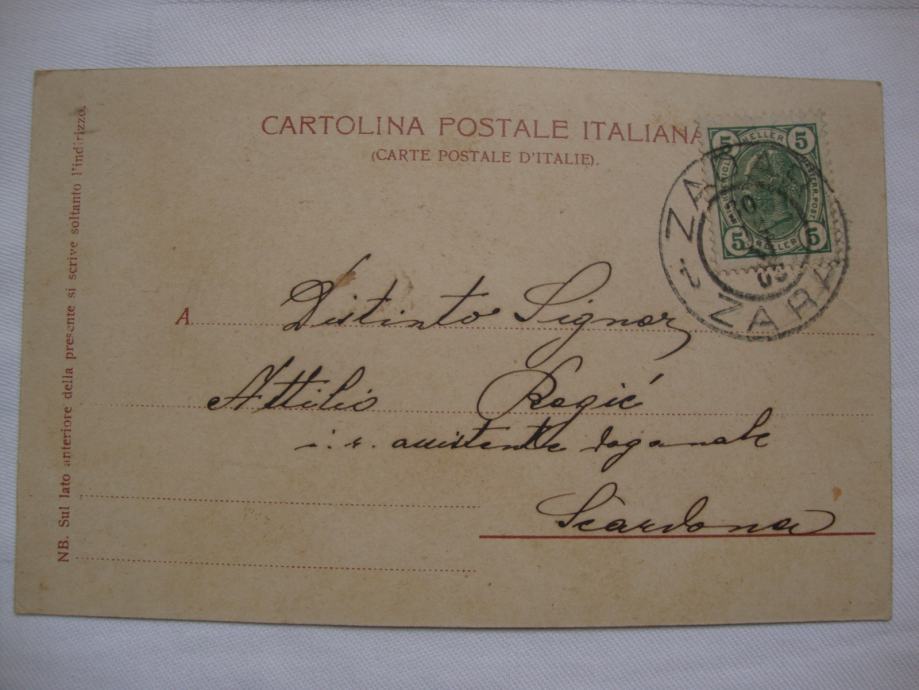 CARTOLINA POSTALE ITALIANA
(CARTE POSTALE D'ITALIE).
5 HELLER 5
5 HELLER 5
ZARA
ZARA
A Distinto Signor
Attilio Rogić
i. r. assistente doganale
Scardona
NB. Sul lato anteriore della presente si scrive soltanto l'indirizzo.